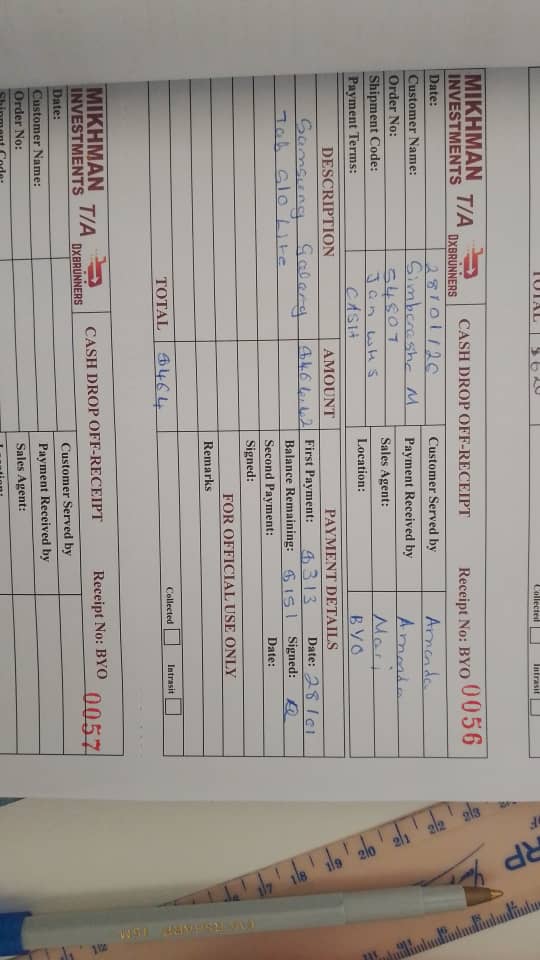 TOTAL $620
Collected Intrasit
MIKHMAN T/A DXBRUNNERS CASH DROP OFF-RECEIPT Receipt No: BYO 0056
INVESTMENTS
Date: 28/01/26 Customer Served by Amanda
Customer Name: Simbarashe M Payment Received by Amanda
Order No: 54807 Sales Agent: Mari
Shipment Code: Jan WHS Location: BYO
Payment Terms: CASH
DESCRIPTION AMOUNT PAYMENT DETAILS
Samsung Galaxy $464.42 First Payment: $313 Date: 28/01
Tab S10 Lite Balance Remaining: $151 Signed:
Second Payment: Date:
Signed:
FOR OFFICIAL USE ONLY
Remarks
TOTAL $464 Collected Intrasit
MIKHMAN T/A DXBRUNNERS CASH DROP OFF-RECEIPT Receipt No: BYO 0057
INVESTMENTS
Date: Customer Served by
Customer Name: Payment Received by
Order No: Sales Agent:
Shipment Code: Location:
17 18 19 20 21 22 23